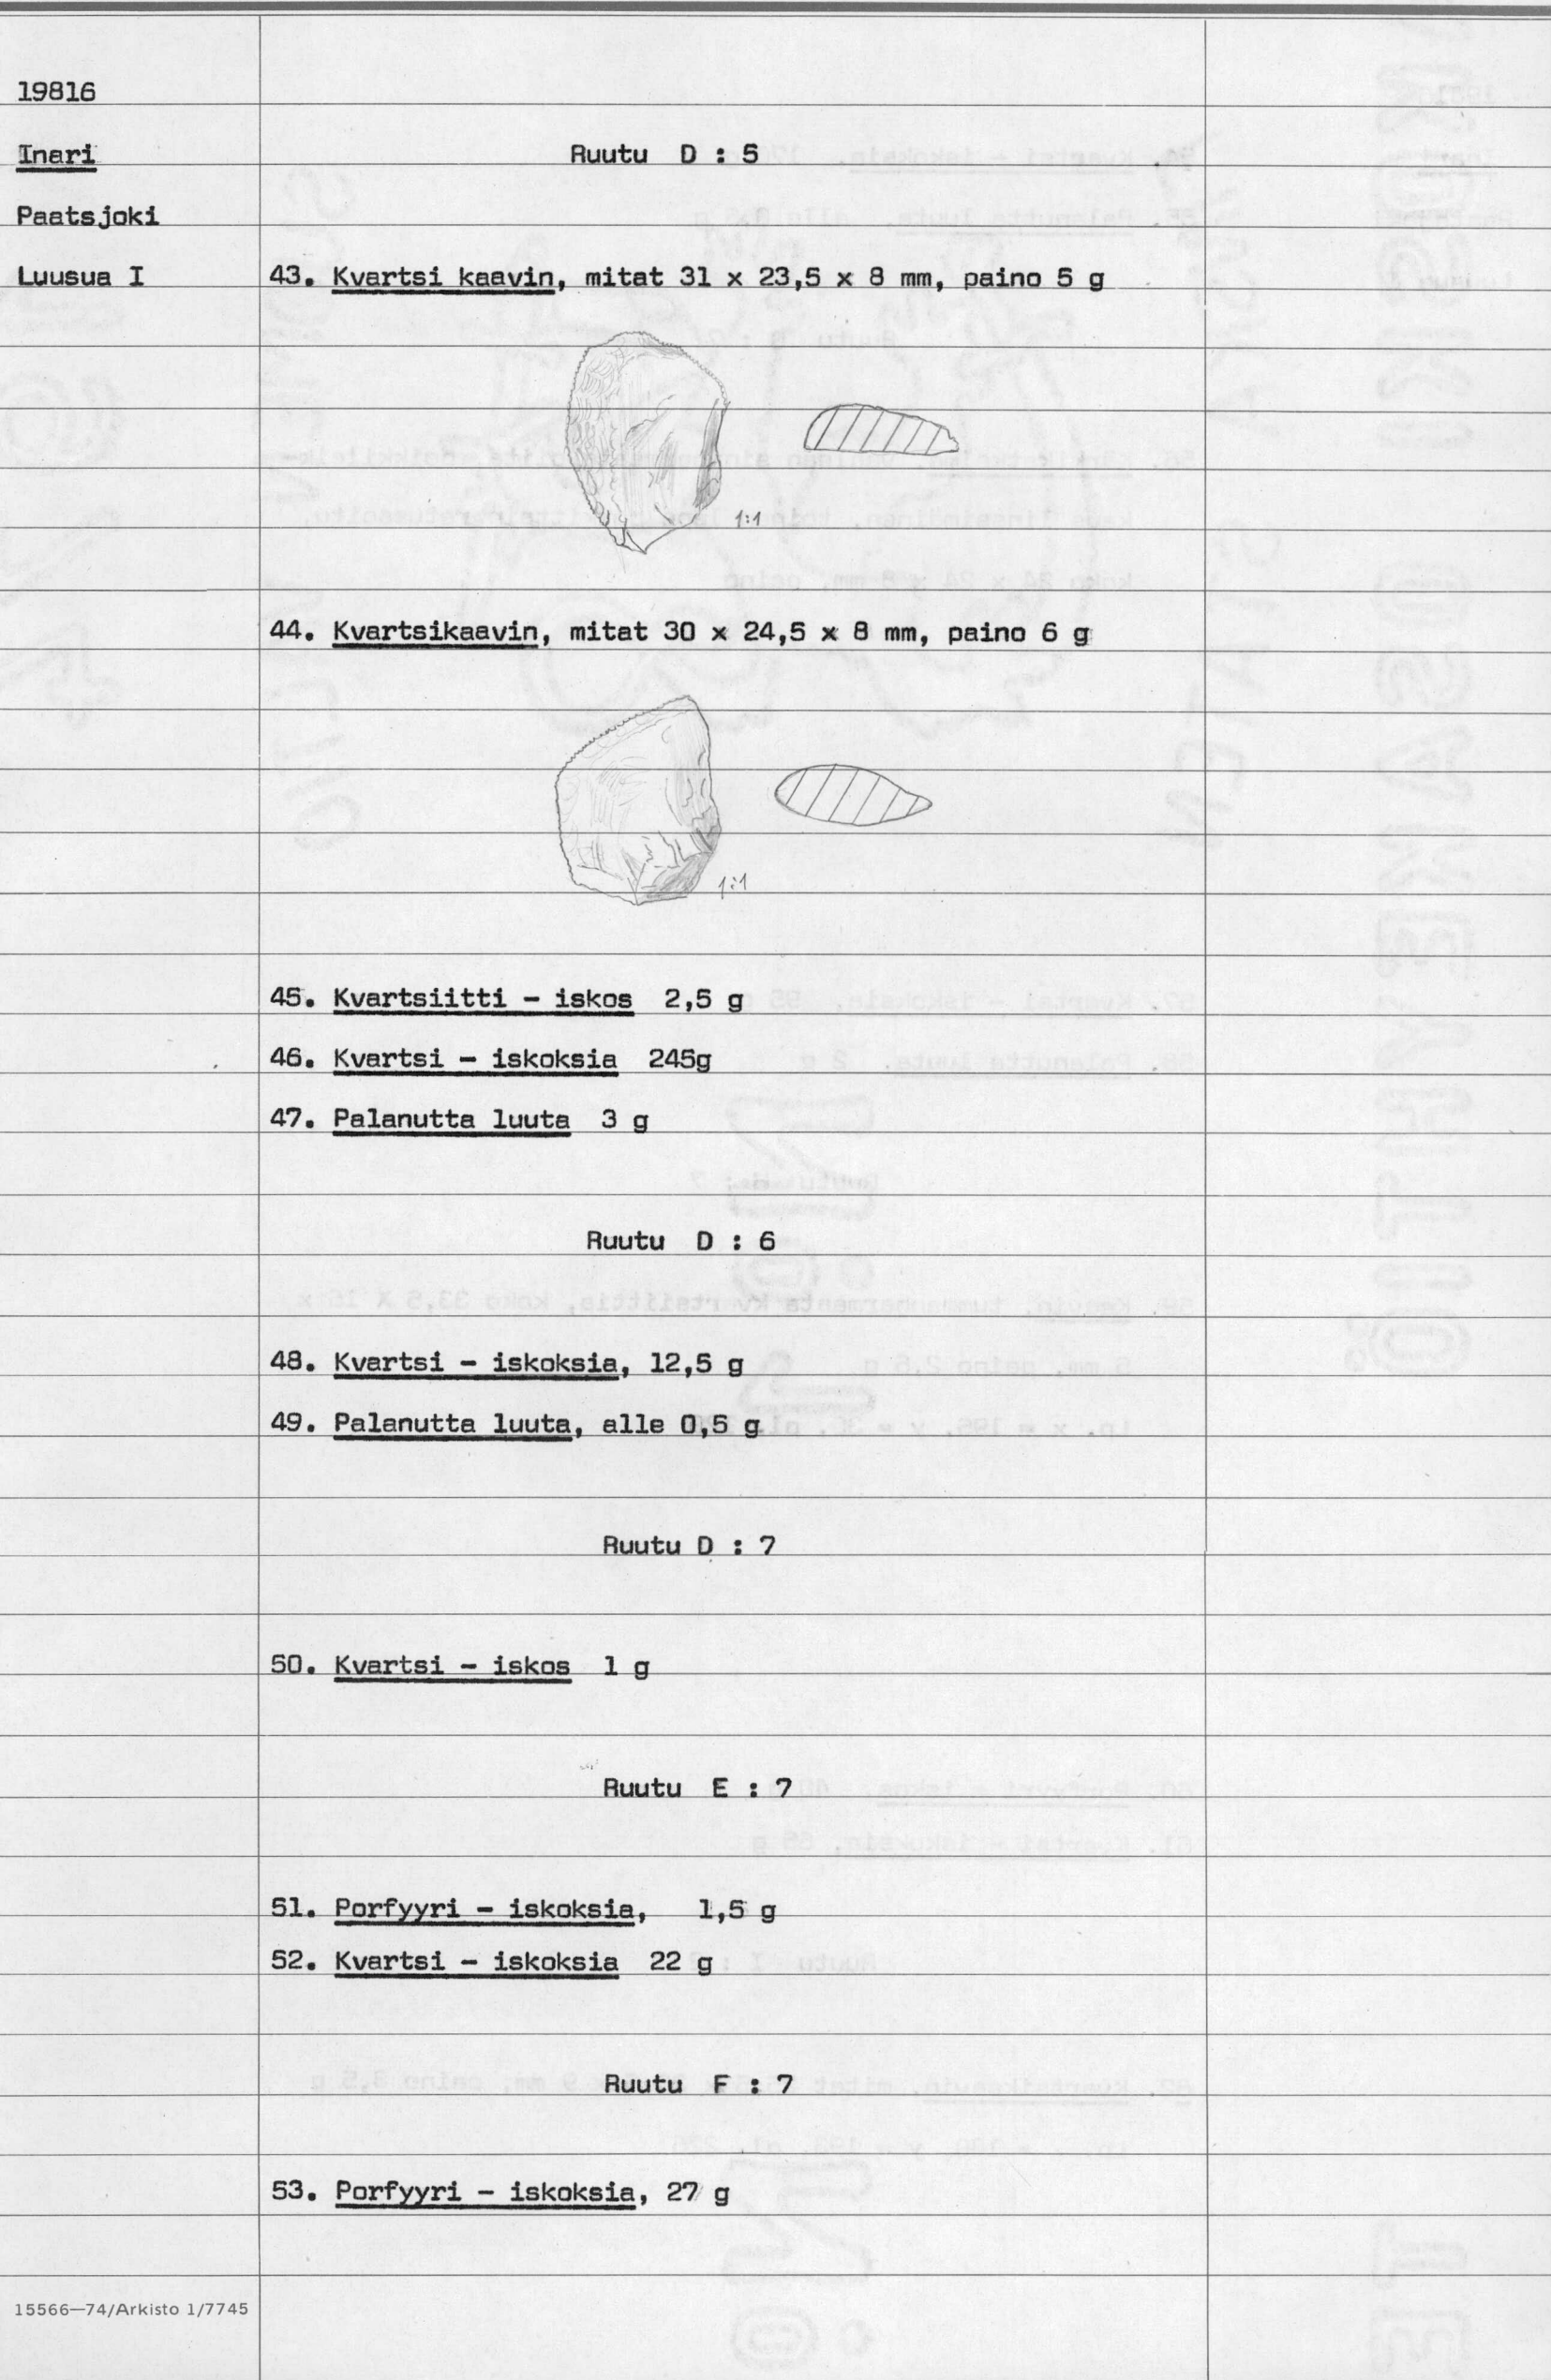 19816
Inari
Ruutu D : 5
Paatsjoki
Luusua I
43. Kvartsi kaavin, mitat 31 x 23,5 x 8 mm, paino 5 g
1:1
44. Kvartsikaavin, mitat 30 x 24,5 x 8 mm, paino 6 g
1:1
45. Kvartsiitti - iskos 2,5 g
46. Kvartsi - iskoksia 245g
47. Palanutta luuta 3 g
Ruutu D : 6
48. Kvartsi - iskoksia, 12,5 g
49. Palanutta luuta, alle 0,5 g
Ruutu D : 7
50. Kvartsi - iskos 1 g
Ruutu E : 7
51. Porfyyri - iskoksia, 1,5 g
52. Kvartsi - iskoksia 22 g
Ruutu F : 7
53. Porfyyri - iskoksia, 27 g
15566—74/Arkisto 1/7745